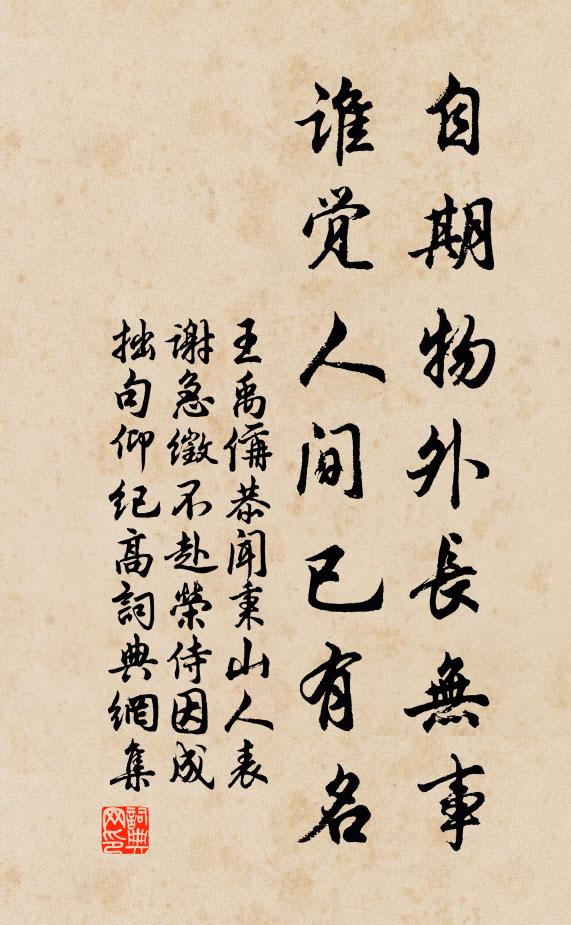 自期物外長無事
谁觉人间已有名
王禹偁恭闻秉山人表
谢急徵不赴榮侍因成
拙句仰纪高詞典網集
詞典网印